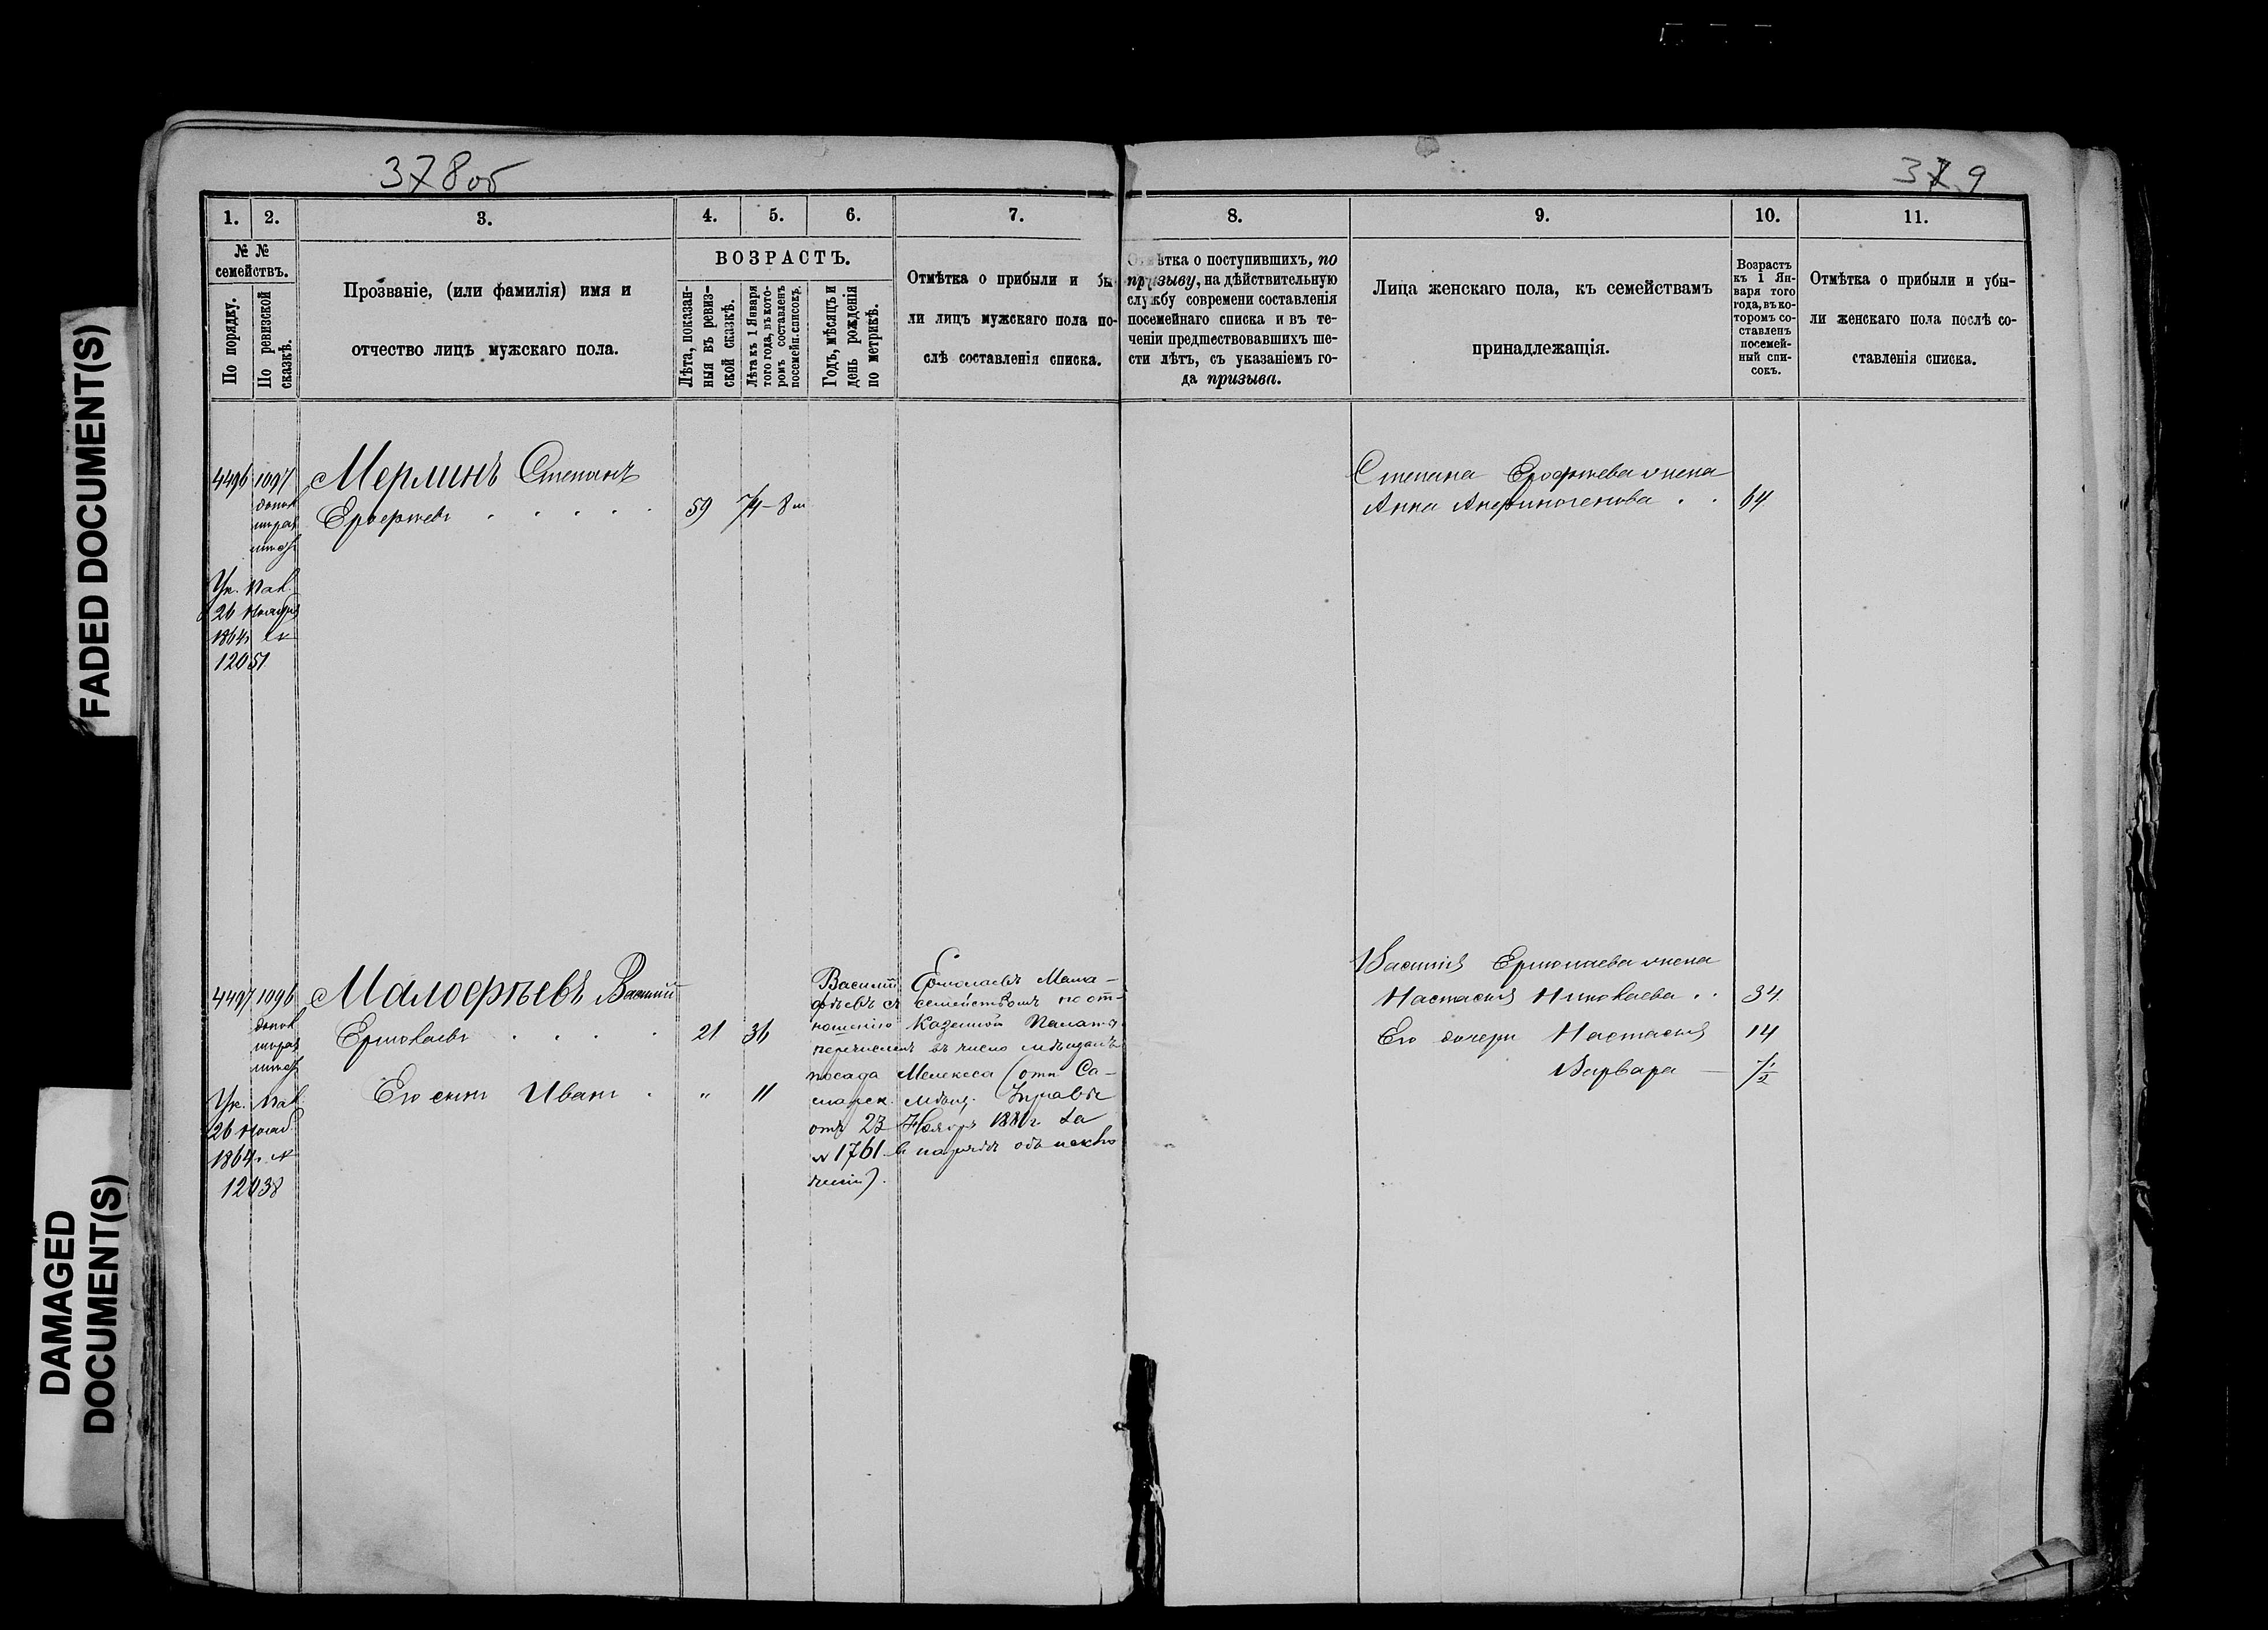 378об
379
FADED DOCUMENT(S)
DAMAGED
DOCUMENT(S)
1. 2. 3. 4. 5. 6. 7. 8. 9. 10. 11.
№ №
семействъ.
По порядку.
По ревизской
сказкѣ.
Прозваніе, (или фамилія) имя и
отчество лицъ мужскаго пола.
ВОЗРАСТЪ.
Лѣта, показан-
ныя въ ревиз-
ской сказкѣ.
Лѣта къ 1 Января
того года, въ кото-
ромъ составленъ
посемейн. списокъ.
Годъ, мѣсяцъ и
день рожденія
по метрикѣ.
Отмѣтка о прибыли и
ли лицъ мужскаго пола по-
слѣ составленія списка.
ѣтка о поступившихъ, по
призыву, на дѣйствительную
службу современи составленія
посемейнаго списка и въ те-
ченіи предшествовавшихъ ше-
сти лѣтъ, съ указаніемъ го-
да призыва.
Лица женскаго пола, къ семействамъ
принадлежащія.
Возрастъ
къ 1 Ян-
варя того
года, въ ко-
торомъ со-
ставленъ
посемей-
ный спи-
сокъ.
Отмѣтка о прибыли и убы-
ли женскаго пола послѣ со-
ставленія списка.
4496 1097 Мерлинъ Степанъ
Ерофѣевъ 59 74 - 8 м
Ук. Пал.
26 Ноября
1864г. №
12051
Степана Ерофѣева жена
Анна Анфиногенова 64
4497 1096 Малофѣевъ Василій
Ермолаевъ 21 36
Его сынъ Иванъ " 11
Ук. Пал.
26 Нояб.
1864г. №
12038
Василій Ермолаевъ Мало-
фѣевъ съ семействомъ по от-
ношенію Казенной Палаты
перечисленъ въ число мѣщанъ
посада Мелекеса (отн. Са-
марск. мѣщ. Управы
отъ 23 Ноября 1881г. за
№ 1761 въ нарядѣ объ исклю
ченіи).
Василія Ермолаева жена
Настасія Николаева 34
Его дочери Настасія 14
Варвара 1/2